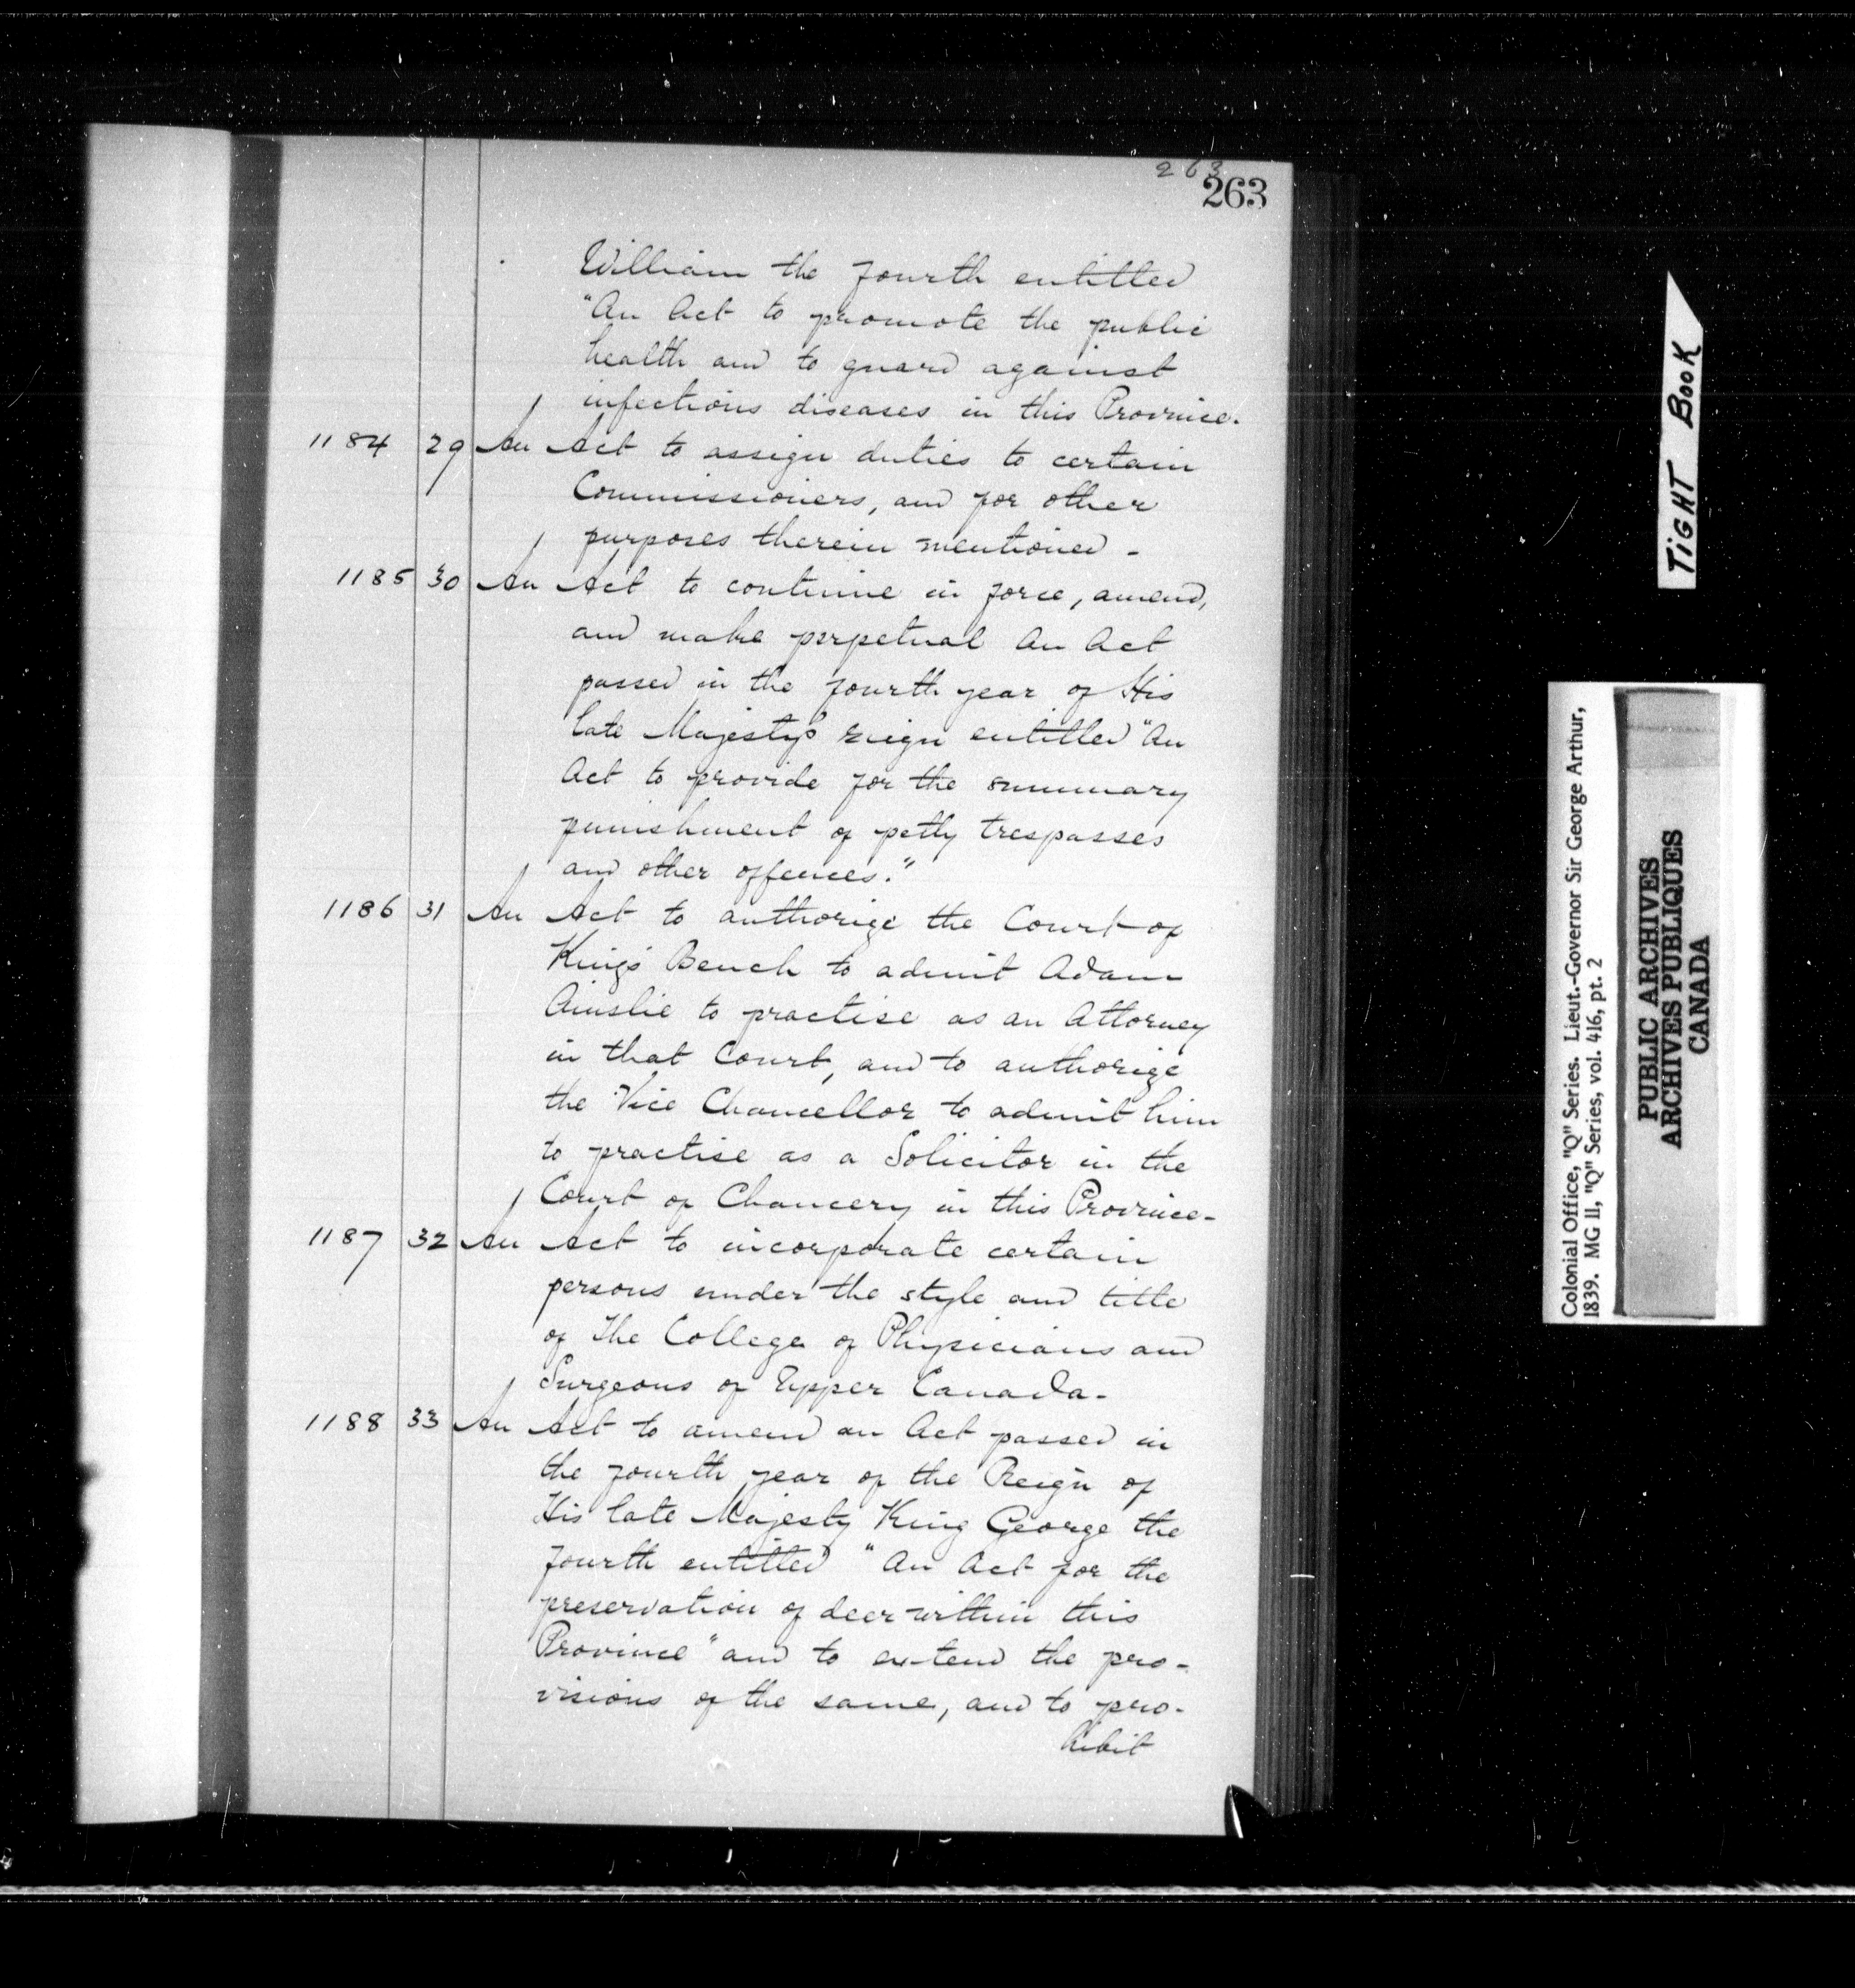 263
263
William the fourth entitled
"An Act to promote the public
health and to guard against
infectious diseases in this Province.
1184 29 An Act to assign duties to certain
Commissioners, and for other
purposes therein mentioned -
1185 30 An Act to continue in force, amend,
and make perpetual An Act
passed in the fourth year of His
late Majesty's reign entitled "An
Act to provide for the summary
punishment of petty trespasses
and other offences."
1186 31 An Act to authorize the Court of
King's Bench to admit Adam
Ainslie to practise as an Attorney
in that Court, and to authorize
the Vice Chancellor to admit him
to practise as a Solicitor in the
Court of Chancery in this Province-
1187 32 An Act to incorporate certain
persons under the style and title
of The College of Physicians and
Surgeons of Upper Canada-
1188 33 An Act to amend an Act passed in
the fourth year of the Reign of
His late Majesty King George the
fourth entitled "An Act for the
preservation of deer within this
Province" and to extend the pro-
visions of the same, and to pro-
hibit
TIGHT BOOK
Colonial Office, "Q" Series. Lieut.-Governor Sir George Arthur,
1839. MG 11, "Q" Series, vol. 416, pt. 2
PUBLIC ARCHIVES
ARCHIVES PUBLIQUES
CANADA